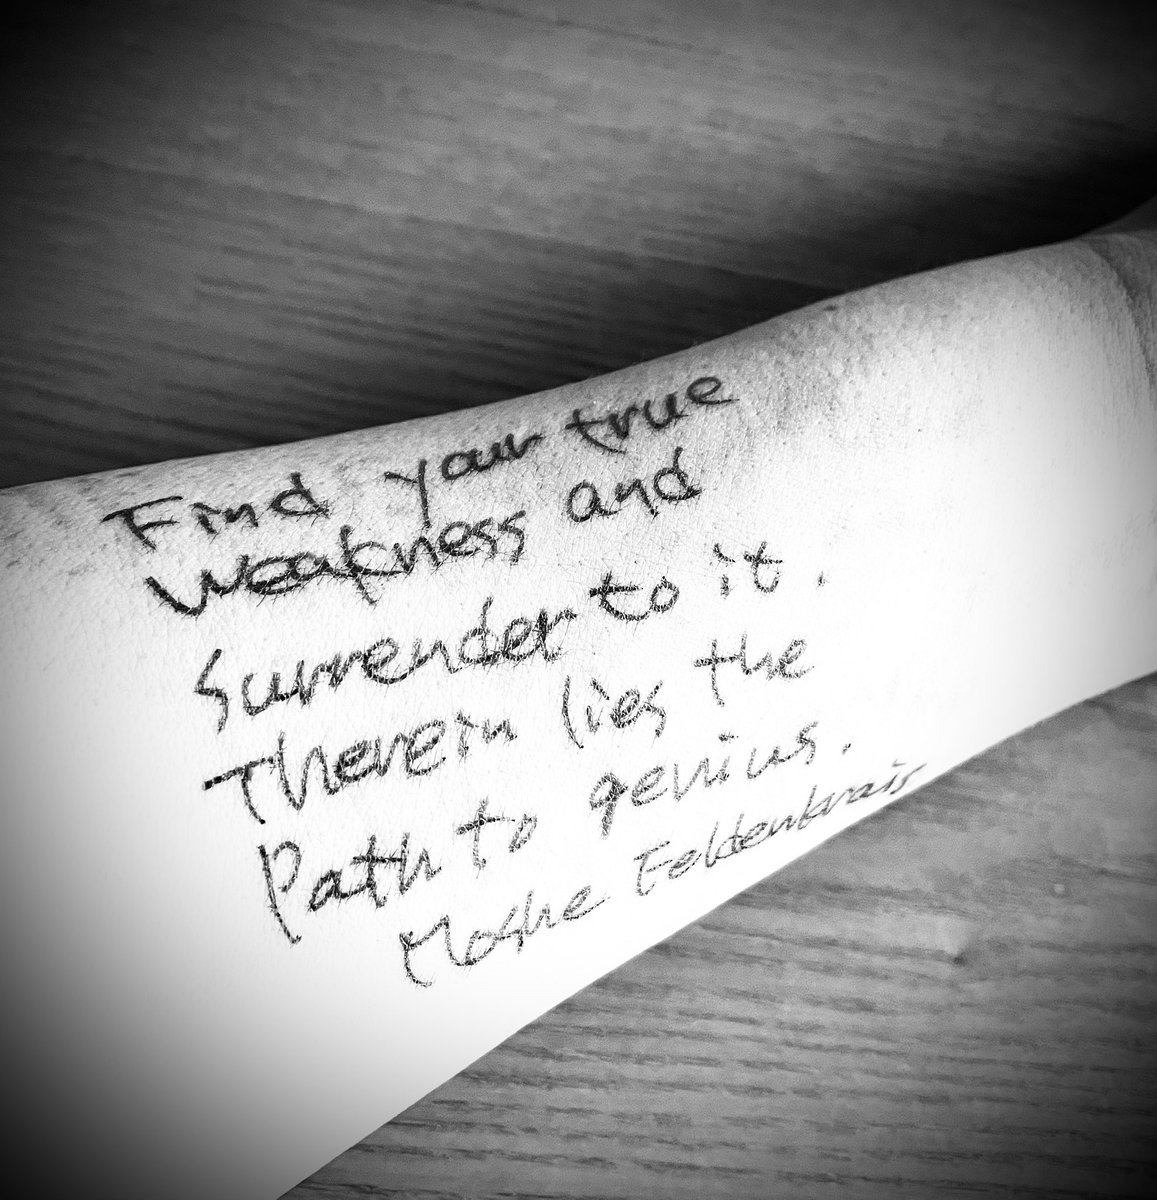 Find your true
weakness and
surrender to it.
Therein lies the
Path to genius.
Moshe Feldenkrais